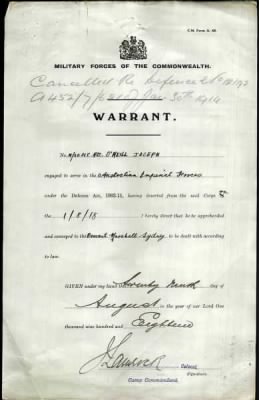 C.M. Form D. 60.
MILITARY FORCES OF THE COMMONWEALTH.
Cancelled
WARRANT.
O'NEILL JOSEPH
engaged to serve in the Australian Imperial Forces
under the Defence Act, 1903-15, having deserted from the said Corps
the 1/8/18 I hereby direct that he be apprehended
and conveyed to the Sydney, to be dealt with according
to law.
GIVEN under my hand this Twenty Ninth day of
August in the year of our Lord One
thousand nine hundred and Eighteen
Colonel
Signature.
Camp Commandant.